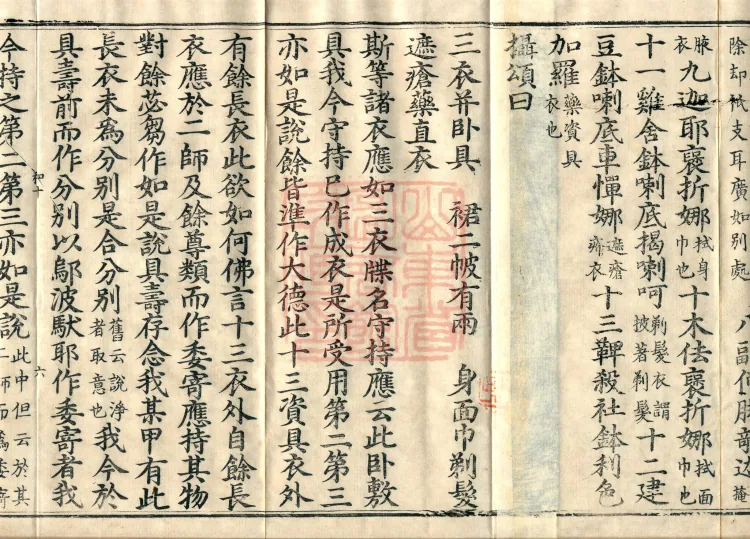 除却祇支耳廣如別處 八副僧脚崎 掩
腋衣 九迦耶褒折娜拭身巾也 十木佉褒折娜拭面巾也
十一雞舍鉢喇底揭喇呵剃髮衣謂披著剃髮 十二建
豆鉢喇底車憚娜遮瘡疥衣 十三鞞殺社鉢利色
加羅藥資具衣也
攝頌曰
三衣并臥具 裙二帔有兩 身面巾剃髮
遮瘡藥直衣
斯等諸衣應如三衣牒名守持應云此臥敷
具我今守持已作成衣是所受用第二第三
亦如是說餘皆準作大德此十三資具衣外
有餘長衣此欲如何佛言十三衣外自餘長
衣應於二師及餘尊類而作委寄應持其物
對餘苾芻作如是說具壽存念我某甲有此
長衣未爲分別是合分別舊云說淨者取意也我今於
具壽前而作分別以鄔波馱耶作委寄者我
和十 六
今持之第二第三亦如是說此中但云於其二師而爲委寄